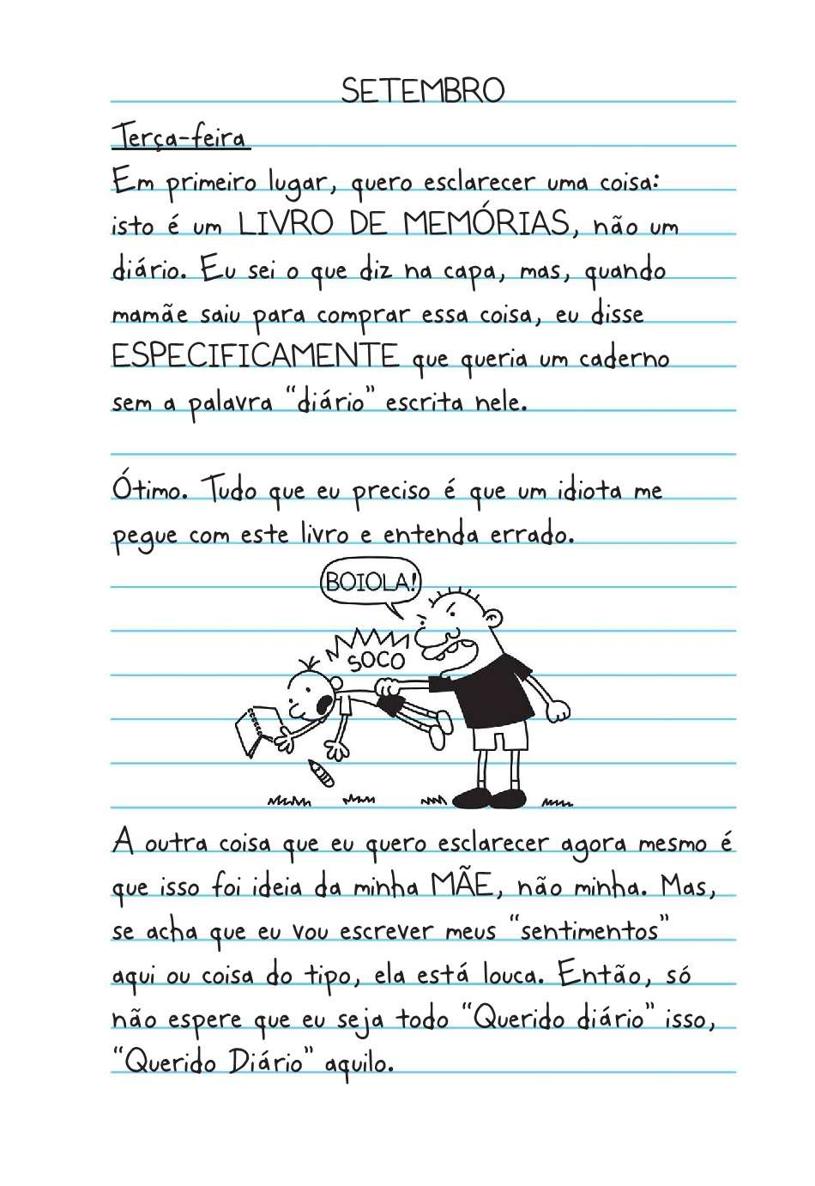 SETEMBRO
Terça-feira
Em primeiro lugar, quero esclarecer uma coisa:
isto é um LIVRO DE MEMÓRIAS, não um
diário. Eu sei o que diz na capa, mas, quando
mamãe saiu para comprar essa coisa, eu disse
ESPECIFICAMENTE que queria um caderno
sem a palavra “diário” escrita nele.
Ótimo. Tudo que eu preciso é que um idiota me
pegue com este livro e entenda errado.
BOIOLA!
SOCO
A outra coisa que eu quero esclarecer agora mesmo é
que isso foi ideia da minha MÃE, não minha. Mas,
se acha que eu vou escrever meus “sentimentos”
aqui ou coisa do tipo, ela está louca. Então, só
não espere que eu seja todo “Querido diário” isso,
“Querido Diário” aquilo.